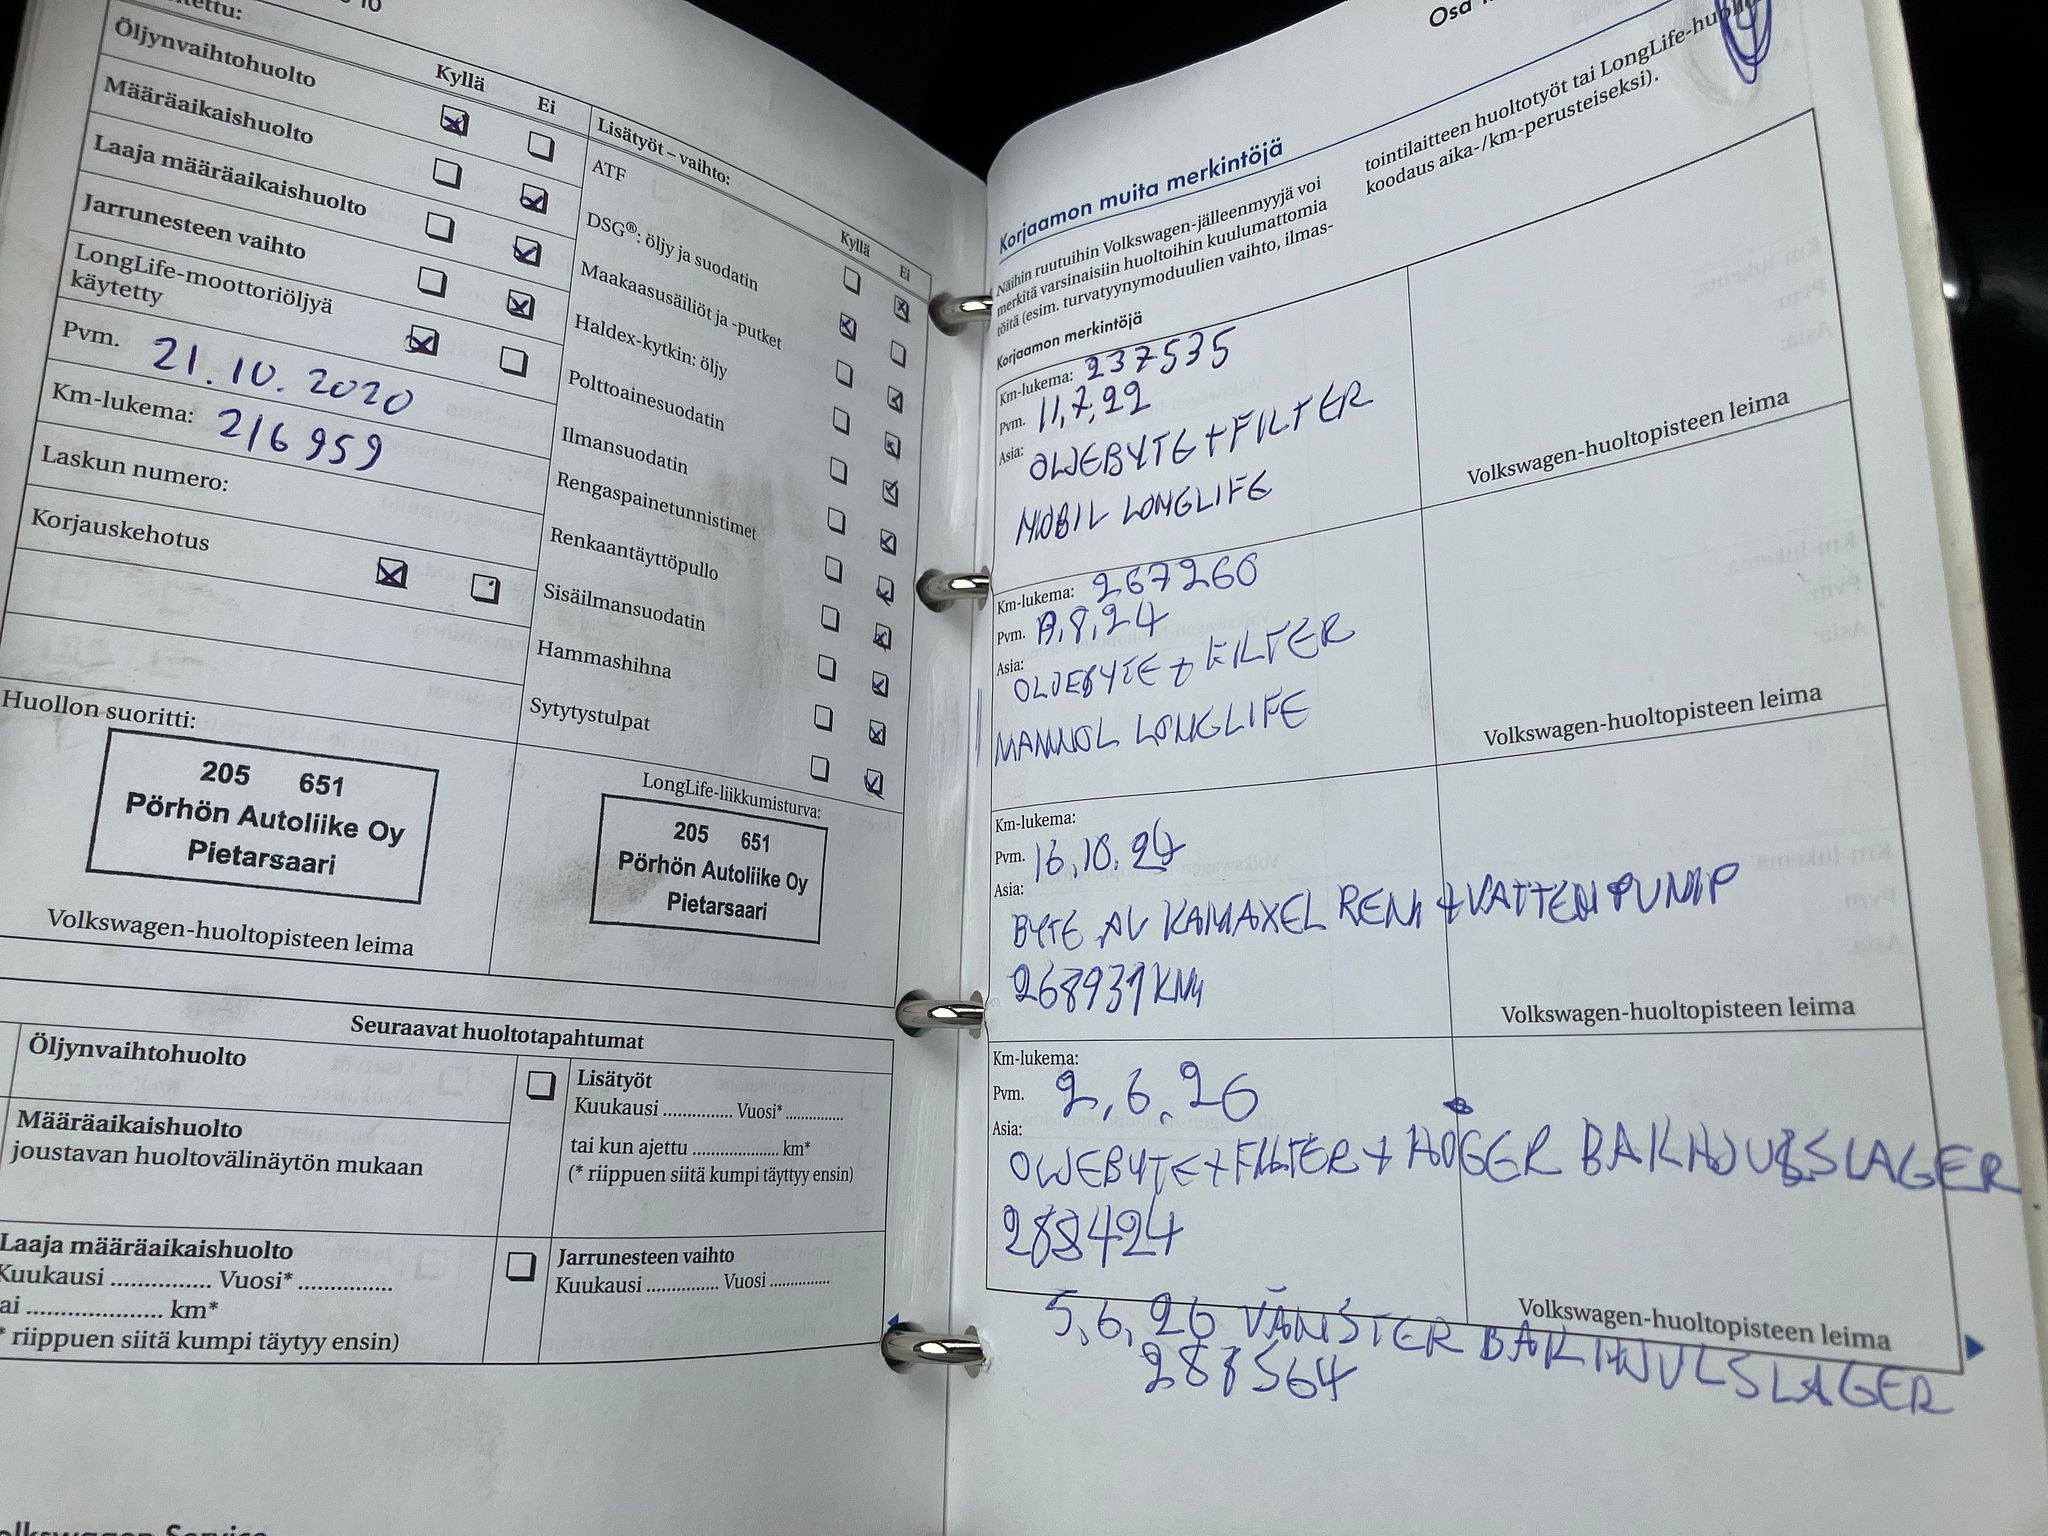 Öljynvaihtohuolto
Kyllä Ei
Määräaikaishuolto
Laaja määräaikaishuolto
Jarrunesteen vaihto
LongLife-moottoriöljyä
käytetty
Pvm. 21.10.2020
Km-lukema: 216959
Laskun numero:
Korjauskehotus
Huollon suoritti:
205 651
Pörhön Autoliike Oy
Pietarsaari
Volkswagen-huoltopisteen leima
Lisätyöt – vaihto:
Kyllä Ei
ATF
DSG®: öljy ja suodatin
Maakaasusäiliöt ja -putket
Haldex-kytkin: öljy
Polttoainesuodatin
Ilmansuodatin
Rengaspainetunnistimet
Renkaantäyttöpullo
Sisäilmansuodatin
Hammashihna
Sytytystulpat
LongLife-liikkumisturva:
205 651
Pörhön Autoliike Oy
Pietarsaari
Seuraavat huoltotapahtumat
Öljynvaihtohuolto
Määräaikaishuolto
joustavan huoltovälinäytön mukaan
Laaja määräaikaishuolto
Kuukausi ............... Vuosi* ..............
..................... km*
* riippuen siitä kumpi täytyy ensin)
Lisätyöt
Kuukausi .............. Vuosi* ..............
tai kun ajettu .................... km*
(* riippuen siitä kumpi täyttyy ensin)
Jarrunesteen vaihto
Kuukausi .............. Vuosi ..............
Osa
Korjaamon muita merkintöjä
Näihin ruutuihin Volkswagen-jälleenmyyjä voi
merkitä varsinaisiin huoltoihin kuulumattomia
töitä (esim. turvatyynymoduulien vaihto, ilmas-
tointilaitteen huoltotyöt tai LongLife-huolto
koodaus aika-/km-perusteiseksi).
Korjaamon merkintöjä
Km-lukema: 237535
Pvm. 11,7,22
Asia: OLJEBYTE + FILTER
MOBIL LONGLIFE
Volkswagen-huoltopisteen leima
Km-lukema: 267260
Pvm. 8,24
Asia: OLJEBYTE + FILTER
MANNOL LONGLIFE
Volkswagen-huoltopisteen leima
Km-lukema:
Pvm. 16.10.24
Asia:
BYTE AV KAMAXEL REM + VATTENPUMP
268931 KM
Volkswagen-huoltopisteen leima
Km-lukema:
Pvm. 2,6,26
Asia:
OLJEBYTE + FILTER + HÖGER BAKHJULSLAGER
288424
Volkswagen-huoltopisteen leima
5,6,26 VÄNSTER BAKHJULSLAGER
288564